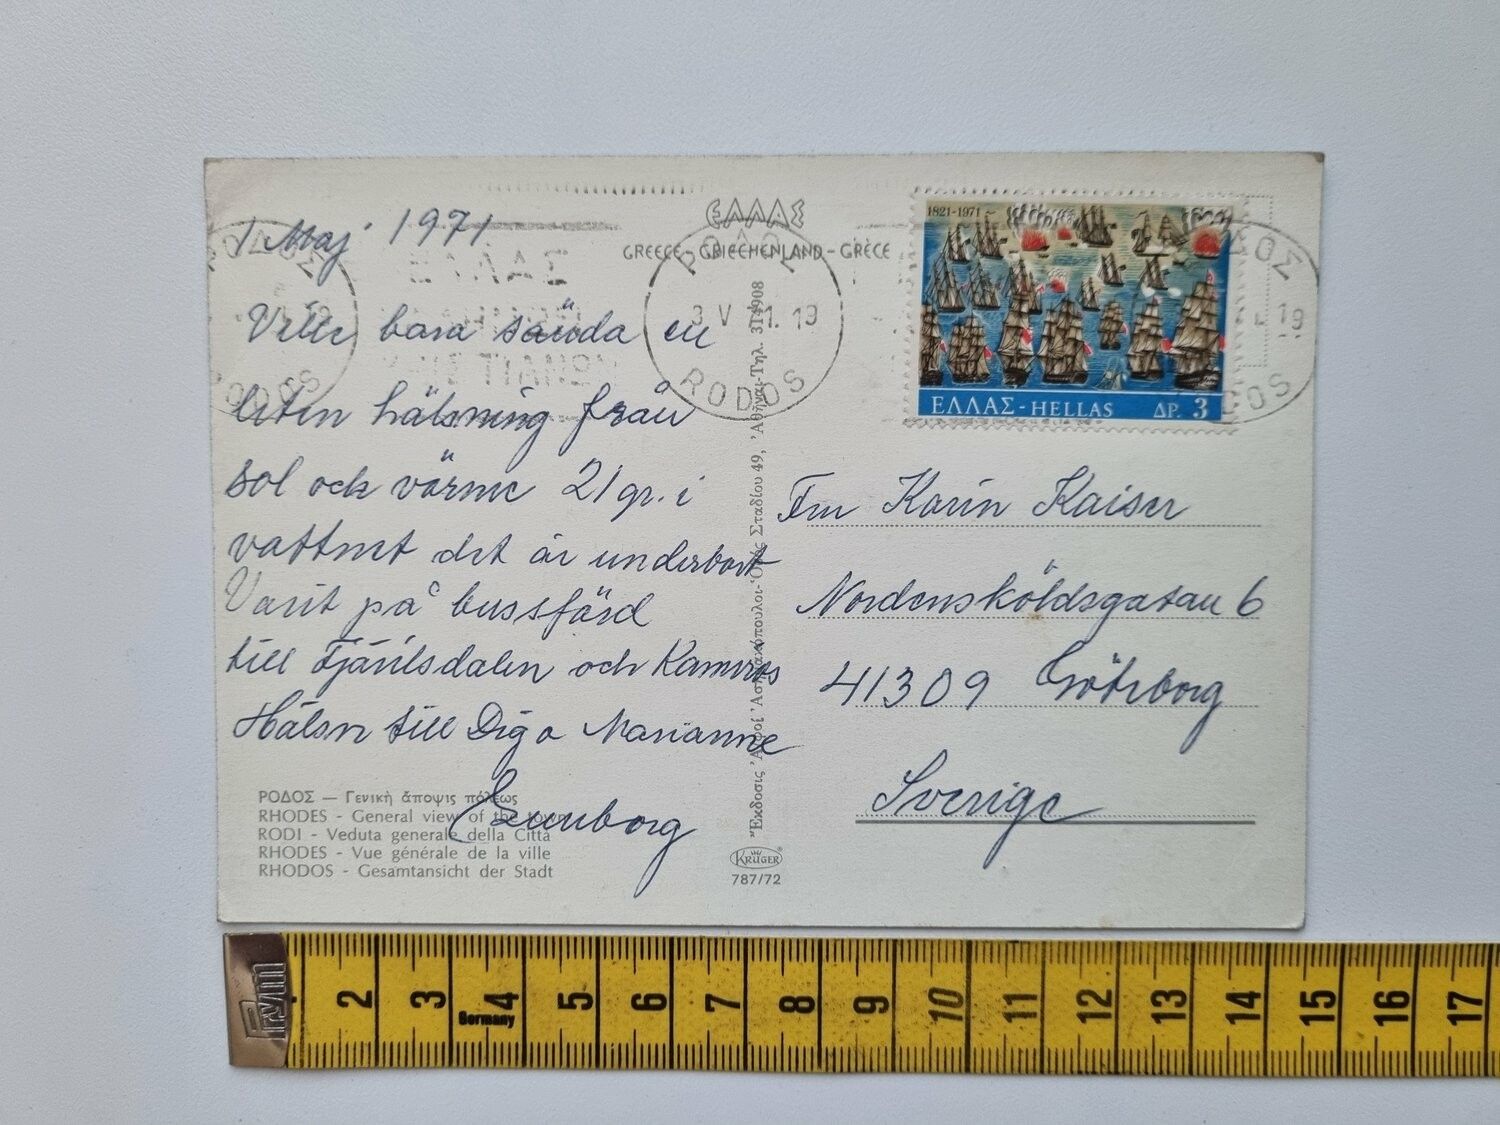 1 Maj 1971
Ville bara sända en
liten hälsning från
sol och värme 21 gr. i
vattnet det är underbart
Varit på bussfärd
till Fjärilsdalen och Kamiros
Hälsn till Dig o Marianne
Gunborg
ΡΟΔΟΣ — Γενική ἄποψις πόλεως
RHODES - General view of the town
RODI - Veduta generale della Città
RHODES - Vue générale de la ville
RHODOS - Gesamtansicht der Stadt
ΕΛΛΑΣ
GREECE - GRIECHENLAND - GRÈCE
ΡΟΔΟΣ
3 V 71. 19
RODOS
Ἔκδοσις Ἀφοί Ὁδός Σταδίου 49, Ἀθῆναι-Τηλ. 314908
KRÜGER
787/72
1821-1971
ΕΛΛΑΣ - HELLAS ΔΡ. 3
ΟΣ
19
DOS
ΡΟΔΟΣ
RODOS
Fru Karin Kaiser
Nordensköldsgatan 6
41309 Göteborg
Sverige
Prym
2 3 4 5 6 7 8 9 10 11 12 13 14 15 16 17
Germany